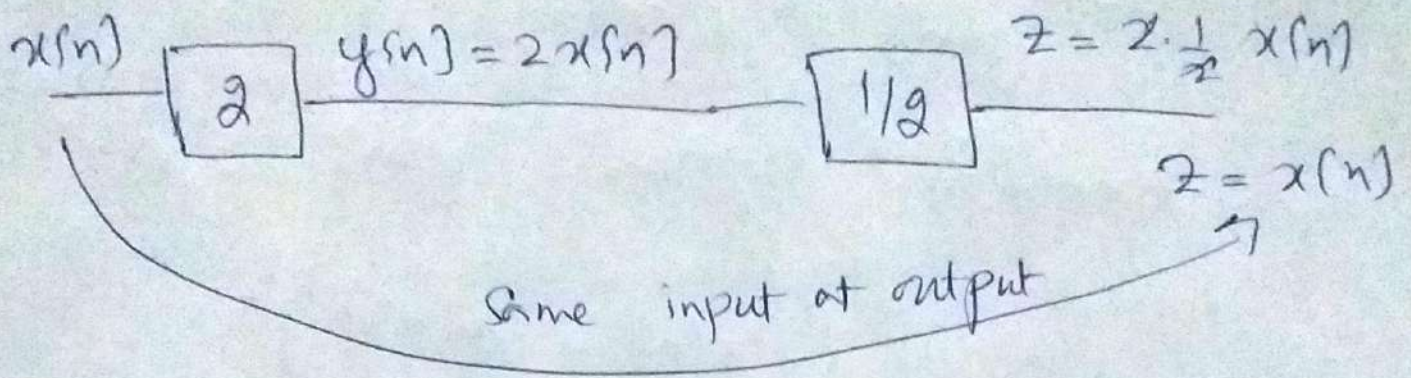 x[n]
2
y[n] = 2x[n]
1/2
z = 2·1/2 x[n]
z = x[n]
Same input at output